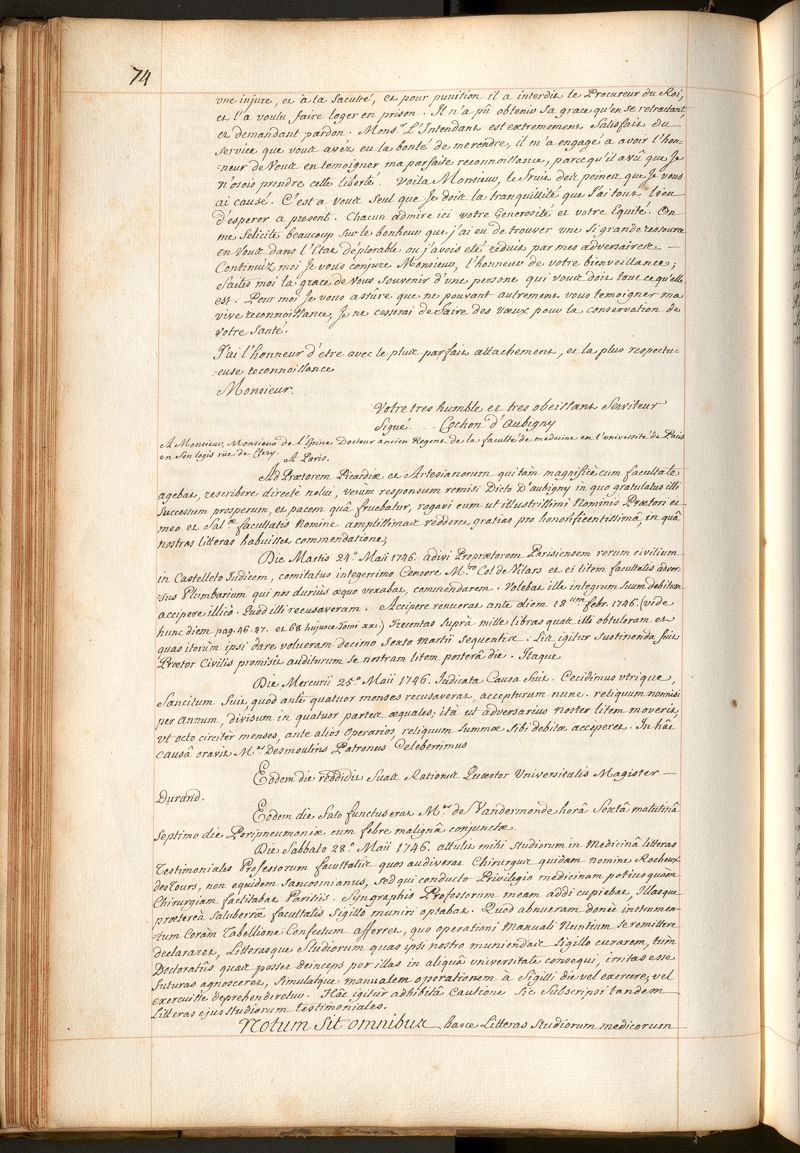 74
une injure, et à la faculté, et pour punition il a interdit le Procureur du Roi,
et l'a voulu faire loger en prison. Il n'a pû obtenir sa grace qu'en se retractant,
et demandant pardon. Mons.r L'Intendant est extremement satisfait du
service que vous avez eu la bonté de me rendre, il m'a engagé a avoir l'hon-
-neur de Vous en temoigner ma parfaite reconnoissance, parce qu'il a vû que Je
n'osois prendre cette liberté. Voila Monsieur, le fruit des peines que Je vous
ai causé. C'est a vous seul que Je dois la tranquillité que J'ai tout lieu
d'esperer a present. Chacun admire ici votre Generosité et votre Equité. On
me felicite beaucoup sur le bonheur que j'ai eu de trouver une si grande ressource
en Vous dans l'Etat déplorable ou j'avois eté réduit par mes adversaires.—
Continuëz moi Je vous conjure Monsieur, l'honneur de votre bienveillance;
faites moi la grace de Vous souvenir d'une persone qui vous doit tout ce qu'elle
est. Pour moi Je vous assûre que ne pouvant autrement vous temoigner ma
vive reconnoissance, Je ne cesserai de faire des vœux pour la conservation de
votre santé.
J'ai l'honneur d'etre avec le plus parfait attachement, et la plus respectu-
-euse reconnoissance
Monsieur.
Votre tres humble et tres obeissant Serviteur
Signé . . Cochon d'Aubigny
A Monsieur, Monsieur de l'Epine Docteur ancien Regent de la faculté de medecine en l'université de Paris
en son logis rüe de Clery. A Paris.
Ad Prætorem Picardiæ et Artesianorum qui tàm magnificè cum facultate
agebat, rescribere directè nolui, verùm responsum remisi Dicto D'aubigny in quo gratulatus illi
successum prosperum, et pacem quâ fruebatur, rogavi eum ut illustrissimi nominis Prætori et
meo et Sal.æ facultatis nomine amplissimas redderet gratias pro honorificentissimâ, in quâ
nostras litteras habuisset commendatione;
Die Martis 24.a Maii 1746. adivi Proprætorem Parisiensem rerum civilium
in Castelleto Judicem, comitatus integerrimo Censore M.ro Col de Vilars et ei litem facultatis adver-
sus Plumbarium qui nos duriùs æquo vexabat, commendarem. Volebat ille integrum suum debitum
accipere illicò. Quod illi recusaveram. Accipere renuerat ante diem 18.um febr. 1746. (vide
hunc diem pag. 46. 47. et 68 hujusce Tomi XXI.) Trecentas suprà mille libras quas illi obtuleram et
quas iterùm ipsi dare volueram decimo sexto martii sequentis. Lis igitur sustinenda fuit
Prætor Civilis promisit auditurum se nostram litem posterâ die. Itaque
Die Mercurii 25.a Maii 1746. Iudicata Causa fuit. Cecidimus utrique,
Sancitum fuit, quod antè quatuor menses recusaverat, accepturum nunc. reliquum nonnisi
per annum, divisum in quatuor partes æquales; ità ut adversarius noster litem moverit,
ut octo circitèr menses, ante alios operarios, reliquum summæ sibi debitæ acciperet. In hâc
causâ oravit M.er Desmoulins Patronus Celeberrimus
Eodem die reddidit suas Rationes Quæstor Universitatis Magister —
Durand.
Eodem die fato functus erat M.er de Vandermonde horâ sextâ matutinâ
septimo die Peripneumoniæ cum febre malignâ conjunctæ.
Die Sabbato 28.a Maii 1746. attulit mihi studiorum in Medicinâ litteras
Testimoniales Professorum facultatis quos audiverat Chirurgus quidam nomine Rocheux
des Tours, non equidem Sancosmianus, sed qui conducto Privilegio medicinam potiùs quàm
Chirurgiam factitabat Parisiis. Syngraphis Professorum meam addi cupiebat, Illasque
prætereà saluberræ facultatis Sigillo muniri optabat. Quod abnueram donec instrumen-
-tum coràm Tabellione Confectum afferret, quo operationi manuali Nuntium se remittere
declararet, Litterasque Studiorum quas ipsi nostro muniendas Sigillo curarem, tùm
Doctoratûs quas posset deinceps per illas in aliquâ universitate consequi, irritas esse
futuras agnosceret, simulatque manualem operationem à Sigilli die vel exercere, vel
exercuisse deprehenderetur. Hâc igitur adhibitâ Cautione sic subscripsi tandem
Litteras ejus studiorum testimoniales.
Notum sit omnibus hasce Litteras studiorum medicorum